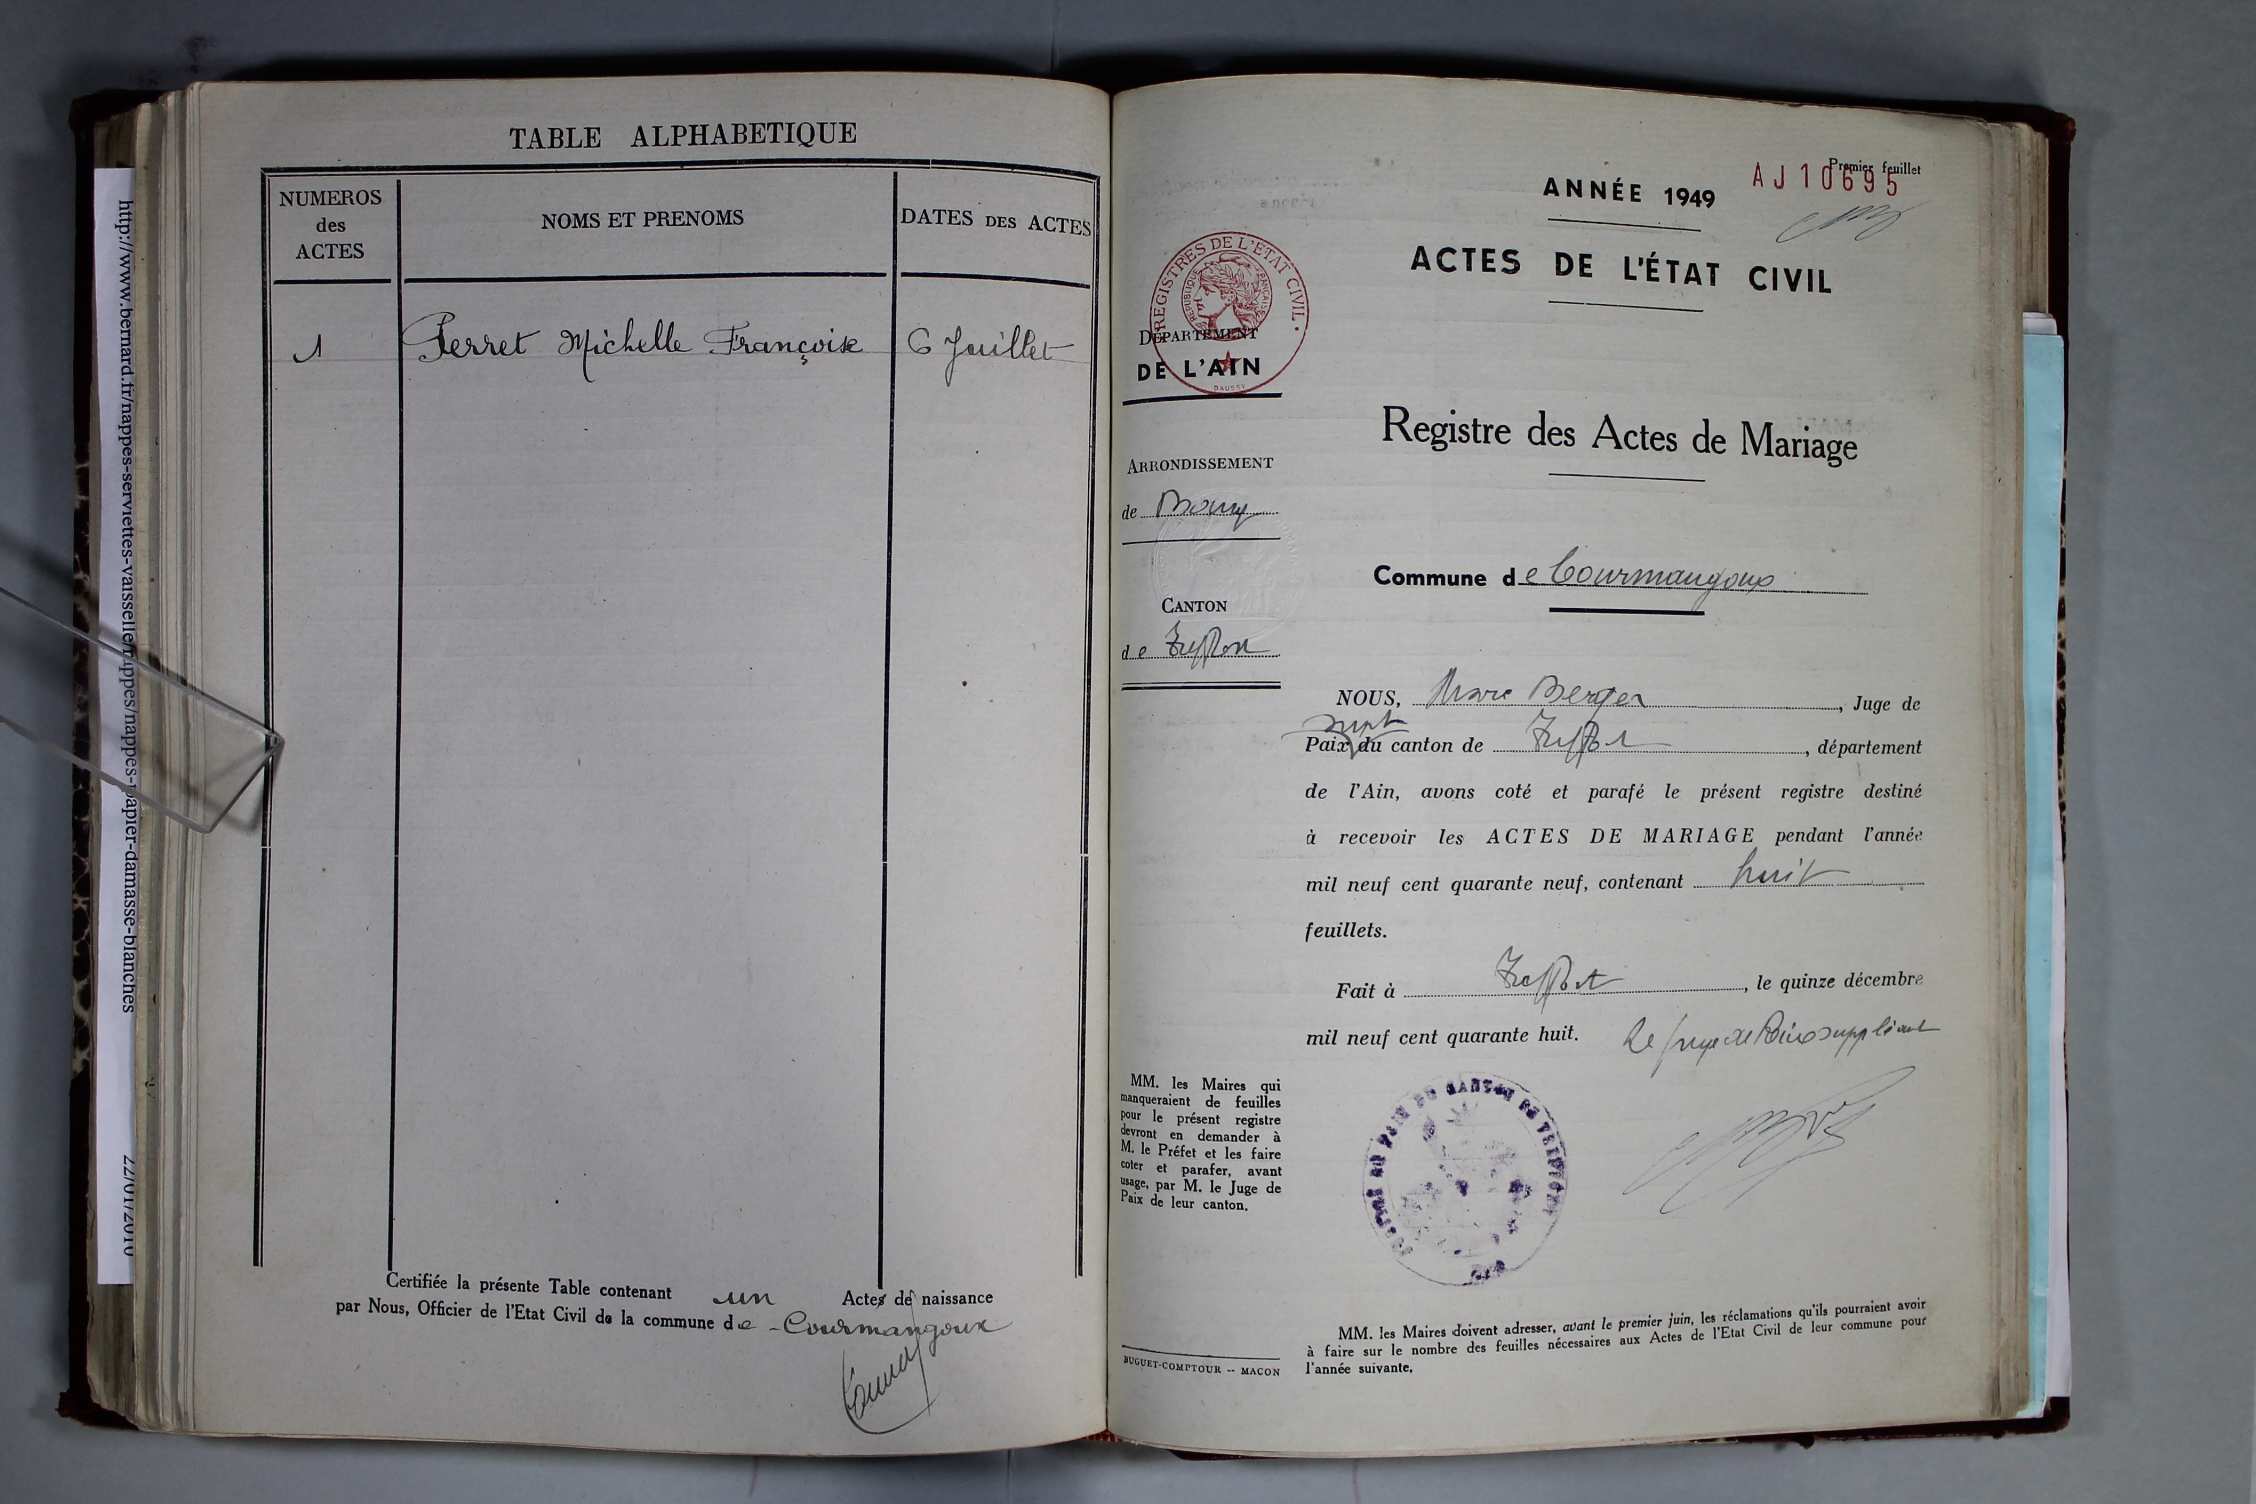 TABLE ALPHABETIQUE
NUMEROS
des
ACTES
NOMS ET PRENOMS
DATES DES ACTES
1
Perret Michelle Françoise
6 Juillet
Certifiée la présente Table contenant un Actes de naissance
par Nous, Officier de l'Etat Civil de la commune de Courmangoux
http://www.bernard.fr/nappes-serviettes-vaisselle/nappes/nappes-papier-damasse-blanches
22/01/2010
Premier feuillet
AJ10695
ANNÉE 1949
ACTES DE L'ÉTAT CIVIL
REGISTRES DE L'ETAT CIVIL
REPUBLIQUE FRANÇAISE
DAUSSY
DÉPARTEMENT
DE L'AIN
Registre des Actes de Mariage
ARRONDISSEMENT
de Bourg
Commune de Courmangoux
CANTON
de Treffort
NOUS, Marc Berger, Juge de
Paix suppt du canton de Treffort, département
de l'Ain, avons coté et parafé le présent registre destiné
à recevoir les ACTES DE MARIAGE pendant l'année
mil neuf cent quarante neuf, contenant huit
feuillets.
Fait à Treffort, le quinze décembre
mil neuf cent quarante huit.
Le juge de Paix suppléant
MM. les Maires qui
manqueraient de feuilles
pour le présent registre
devront en demander à
M. le Préfet et les faire
coter et parafer, avant
usage, par M. le Juge de
Paix de leur canton.
BUGUET-COMPTOUR -- MACON
MM. les Maires doivent adresser, avant le premier juin, les réclamations qu'ils pourraient avoir
à faire sur le nombre des feuilles nécessaires aux Actes de l'Etat Civil de leur commune pour
l'année suivante.